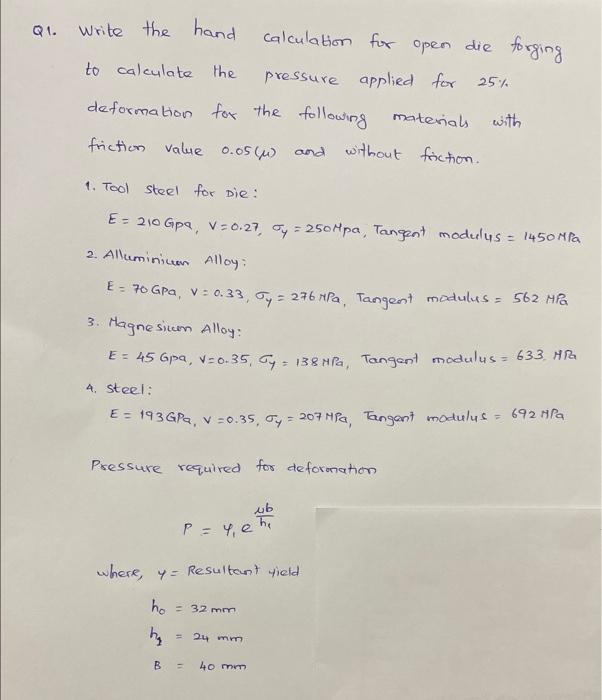 Q1. Write the hand calculation for open die forging
to calculate the pressure applied for 25%
deformation for the following materials with
friction value 0.05(μ) and without friction.
1. Tool steel for Die:
E = 210 Gpa, V = 0.27, σy = 250Mpa, Tangent modulus = 1450 MPa
2. Alluminium Alloy:
E = 70 GPa, V = 0.33, σy = 276 MPa, Tangent modulus = 562 MPa
3. Magnesium Alloy:
E = 45 Gpa, V = 0.35, σy = 138 MPa, Tangent modulus = 633 MPa
4. Steel:
E = 193 GPa, V = 0.35, σy = 207 MPa, Tangent modulus = 692 MPa
Pressure required for deformation
P = Y₁ e^(μb/h₁)
where, y = Resultant yield
h₀ = 32 mm
h₁ = 24 mm
B = 40 mm